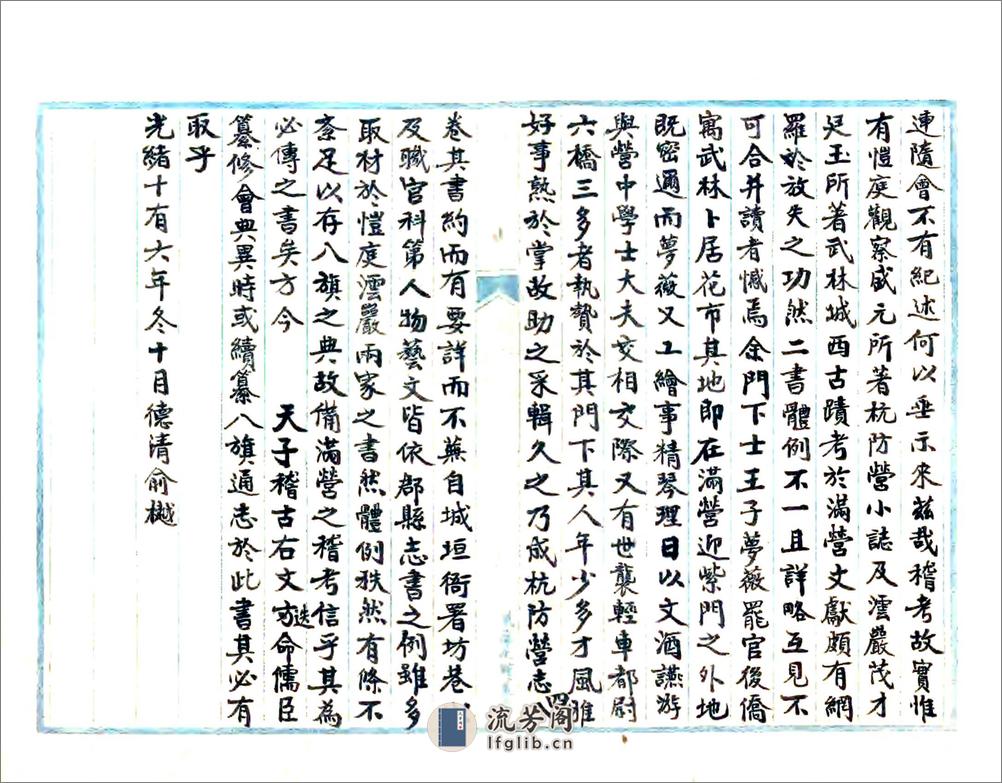 連隨會不有紀述何以垂示來茲哉稽考故實惟
有愷庭觀察盛元所著杭防營小誌及澐巖茂才
廷玉所著武林城西古蹟考於滿營文獻頗有網
羅於放失之功然二書體例不一且詳略互見不
可合并讀者憾焉余門下士王子夢薇罷官後僑
寓武林卜居花市其地即在滿營迎紫門之外地
既密邇而夢薇又工繪事精琴理日以文酒讌游
與營中學士大夫交相交際又有世襲輕車都尉
六橋三多者執贄於其門下其人年少多才風雅
好事熟於掌故助之采輯久之乃成杭防營志四
卷其書約而有要詳而不蕪自城垣衙署坊巷以
及職官科第人物藝文皆依郡縣志書之例雖多
取材於愷庭澐巖兩家之書然體例秩然有條不
紊足以存八旗之典故備滿營之稽考信乎其為
必傳之書矣方今 天子稽古右文方迭命儒臣
纂修會典異時或續纂八旗通志於此書其必有
取乎
光緒十有六年冬十月德清俞樾
流芳阁
lfglib.cn